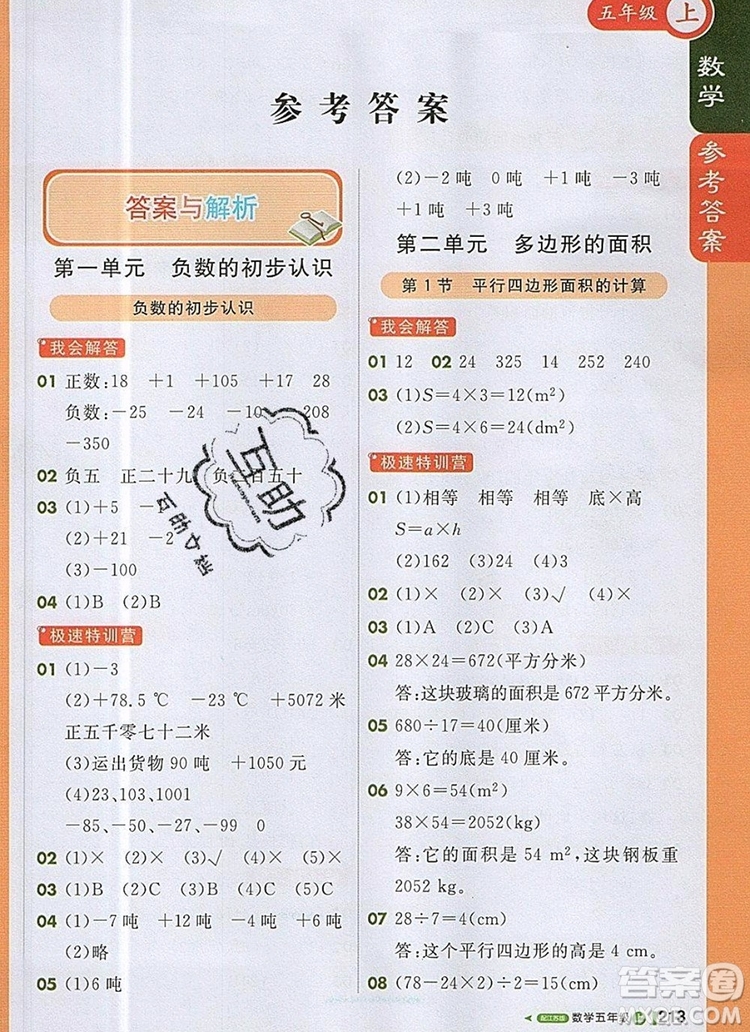 五年级 上
数学
参考答案
参考答案
答案与解析
第一单元 负数的初步认识
负数的初步认识
我会解答
01 正数:18 +1 +105 +17 28
负数:-25 -24 -10 -208
-350
02 负五 正二十九 负二百五十
03 (1)+5
(2)+21 -2
(3)-100
04 (1)B (2)B
极速特训营
01 (1)-3
(2)+78.5 ℃ -23 ℃ +5072 米
正五千零七十二米
(3)运出货物 90 吨 +1050 元
(4)23,103,1001
-85,-50,-27,-99 0
02 (1)× (2)× (3)√ (4)× (5)×
03 (1)B (2)C (3)B (4)C (5)C
04 (1)-7 吨 +12 吨 -4 吨 +6 吨
(2)略
05 (1)6 吨
(2)-2 吨 0 吨 +1 吨 -3 吨
+1 吨 +3 吨
第二单元 多边形的面积
第 1 节 平行四边形面积的计算
我会解答
01 12 02 24 325 14 252 240
03 (1)S=4×3=12(m²)
(2)S=4×6=24(dm²)
极速特训营
01 (1)相等 相等 相等 底×高
S=a×h
(2)162 (3)24 (4)3
02 (1)× (2)× (3)√ (4)×
03 (1)A (2)C (3)A
04 28×24=672(平方分米)
答:这块玻璃的面积是 672 平方分米。
05 680÷17=40(厘米)
答:它的底是 40 厘米。
06 9×6=54(m²)
38×54=2052(kg)
答:它的面积是 54 m²,这块钢板重
2052 kg。
07 28÷7=4(cm)
答:这个平行四边形的高是 4 cm。
08 (78-24×2)÷2=15(cm)
互助
互助文档
配江苏版 数学五年级 上 213
答案圈
MXQE.COM